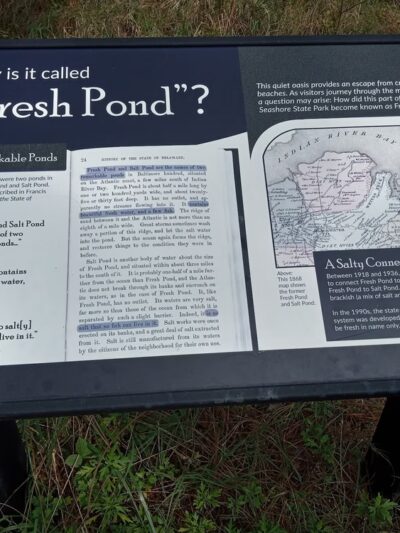 is it called
resh Pond”?
kable Ponds
were two ponds in
nd and Salt Pond.
cribed in Francis
the State of
nd Salt Pond
of two
onds..”
ontains
water,
o salt[y]
live in it.”
24 HISTORY OF THE STATE OF DELAWARE.
Fresh Pond and Salt Pond are the names of two
remarkable ponds in Baltimore hundred, situated
on the Atlantic coast, a few miles south of Indian
River Bay. Fresh Pond is about half a mile long by
one or two hundred yards wide, and about twenty-
five or thirty feet deep. It has no outlet, and ap-
parently no streams flowing into it. It contains
beautiful fresh water, and a few fish. The ridge of
sand between it and the Atlantic is not more than an
eighth of a mile wide. Great storms sometimes wash
away a portion of this ridge, and let the salt water
into the pond. But the ocean again forms the ridge,
and restores things to the condition they were in
before.
Salt Pond is another body of water about the size
of Fresh Pond, and situated within about three miles
to the south of it. It is probably one-half of a mile far-
ther from the ocean than Fresh Pond, and the Atlan-
tic does not break through its banks and encroach on
its waters, as in the case of Fresh Pond. It, like
Fresh Pond, has no outlet. Its waters are very salt,
far more so than those of the ocean from which it is
separated by such a slight barrier. Indeed, it is so
salt that no fish can live in it. Salt works were once
erected on its banks, and a great deal of salt extracted
from it. Salt is still manufactured from its waters
by the citizens of the neighborhood for their own use.
This quiet oasis provides an escape from c
beaches. As visitors journey through the m
a question may arise: How did this part of
Seashore State Park become known as Fr
INDIAN RIVER BAY
Above:
This 1868
map shows
the former
Fresh Pond
and Salt Pond.
A Salty Conne
Between 1918 and 1936,
to connect Fresh Pond to
Fresh Pond to Salt Pond.
brackish (a mix of salt a
In the 1990s, the state
system was developed
be fresh in name only,